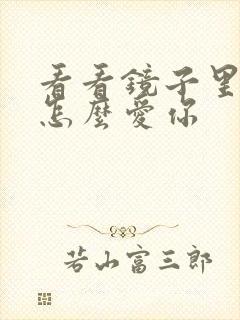 看看鏡子里
怎麼愛你
若山富三郎